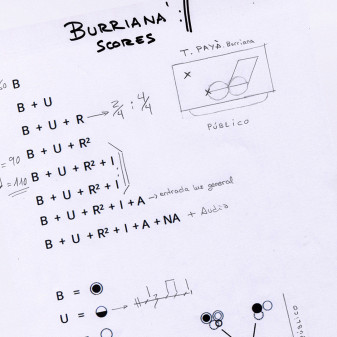 BURRIANA'
SCORES
T. PAYÀ. Burriana
B
B + U
B + U + R → 2/4 : 4/4
PÚBLICO
= 90 B + U + R²
= 110 B + U + R² + I
B + U + R² + I
B + U + R² + I + A → entrada luz general
B + U + R² + I + A + NA + Audio
B =
U =